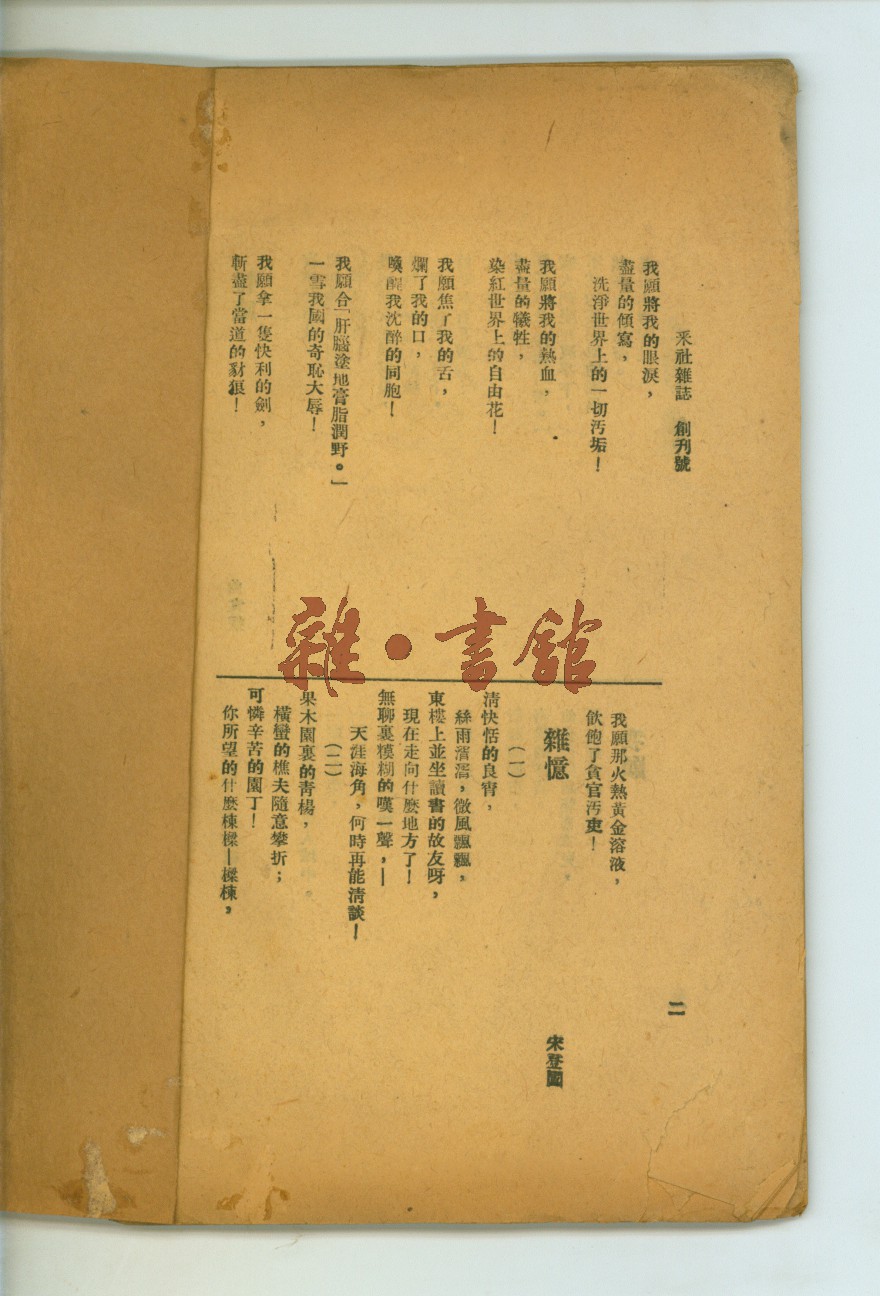 釆社雜誌　創刊號
我願將我的眼淚，
盡量的傾寫，
洗淨世界上的一切汚垢！
我願將我的熱血，
盡量的犧牲，
染紅世界上的自由花！
我願焦了我的舌，
爛了我的口，
喚醒我沈醉的同胞！
我願合「肝腦塗地膏脂潤野。」
一雪我國的奇恥大辱！
我願拿一隻快利的劍，
斬盡了當道的豺狼！
我願那火熱黃金溶液，
飲飽了貪官汚吏！
雜憶
宋登國
（一）
淸快恬的良宵，
絲雨濟濟，微風飄飄，
東樓上並坐讀書的故友呀，
現在走向什麽地方了！
無聊裏糢糊的嘆一聲，—
天涯海角，何時再能淸談！
（二）
果木園裏的靑楊，
橫蠻的樵夫隨意攀折；
可憐辛苦的園丁！
你所望的什麽棟樑—樑棟，
二
雜·書館